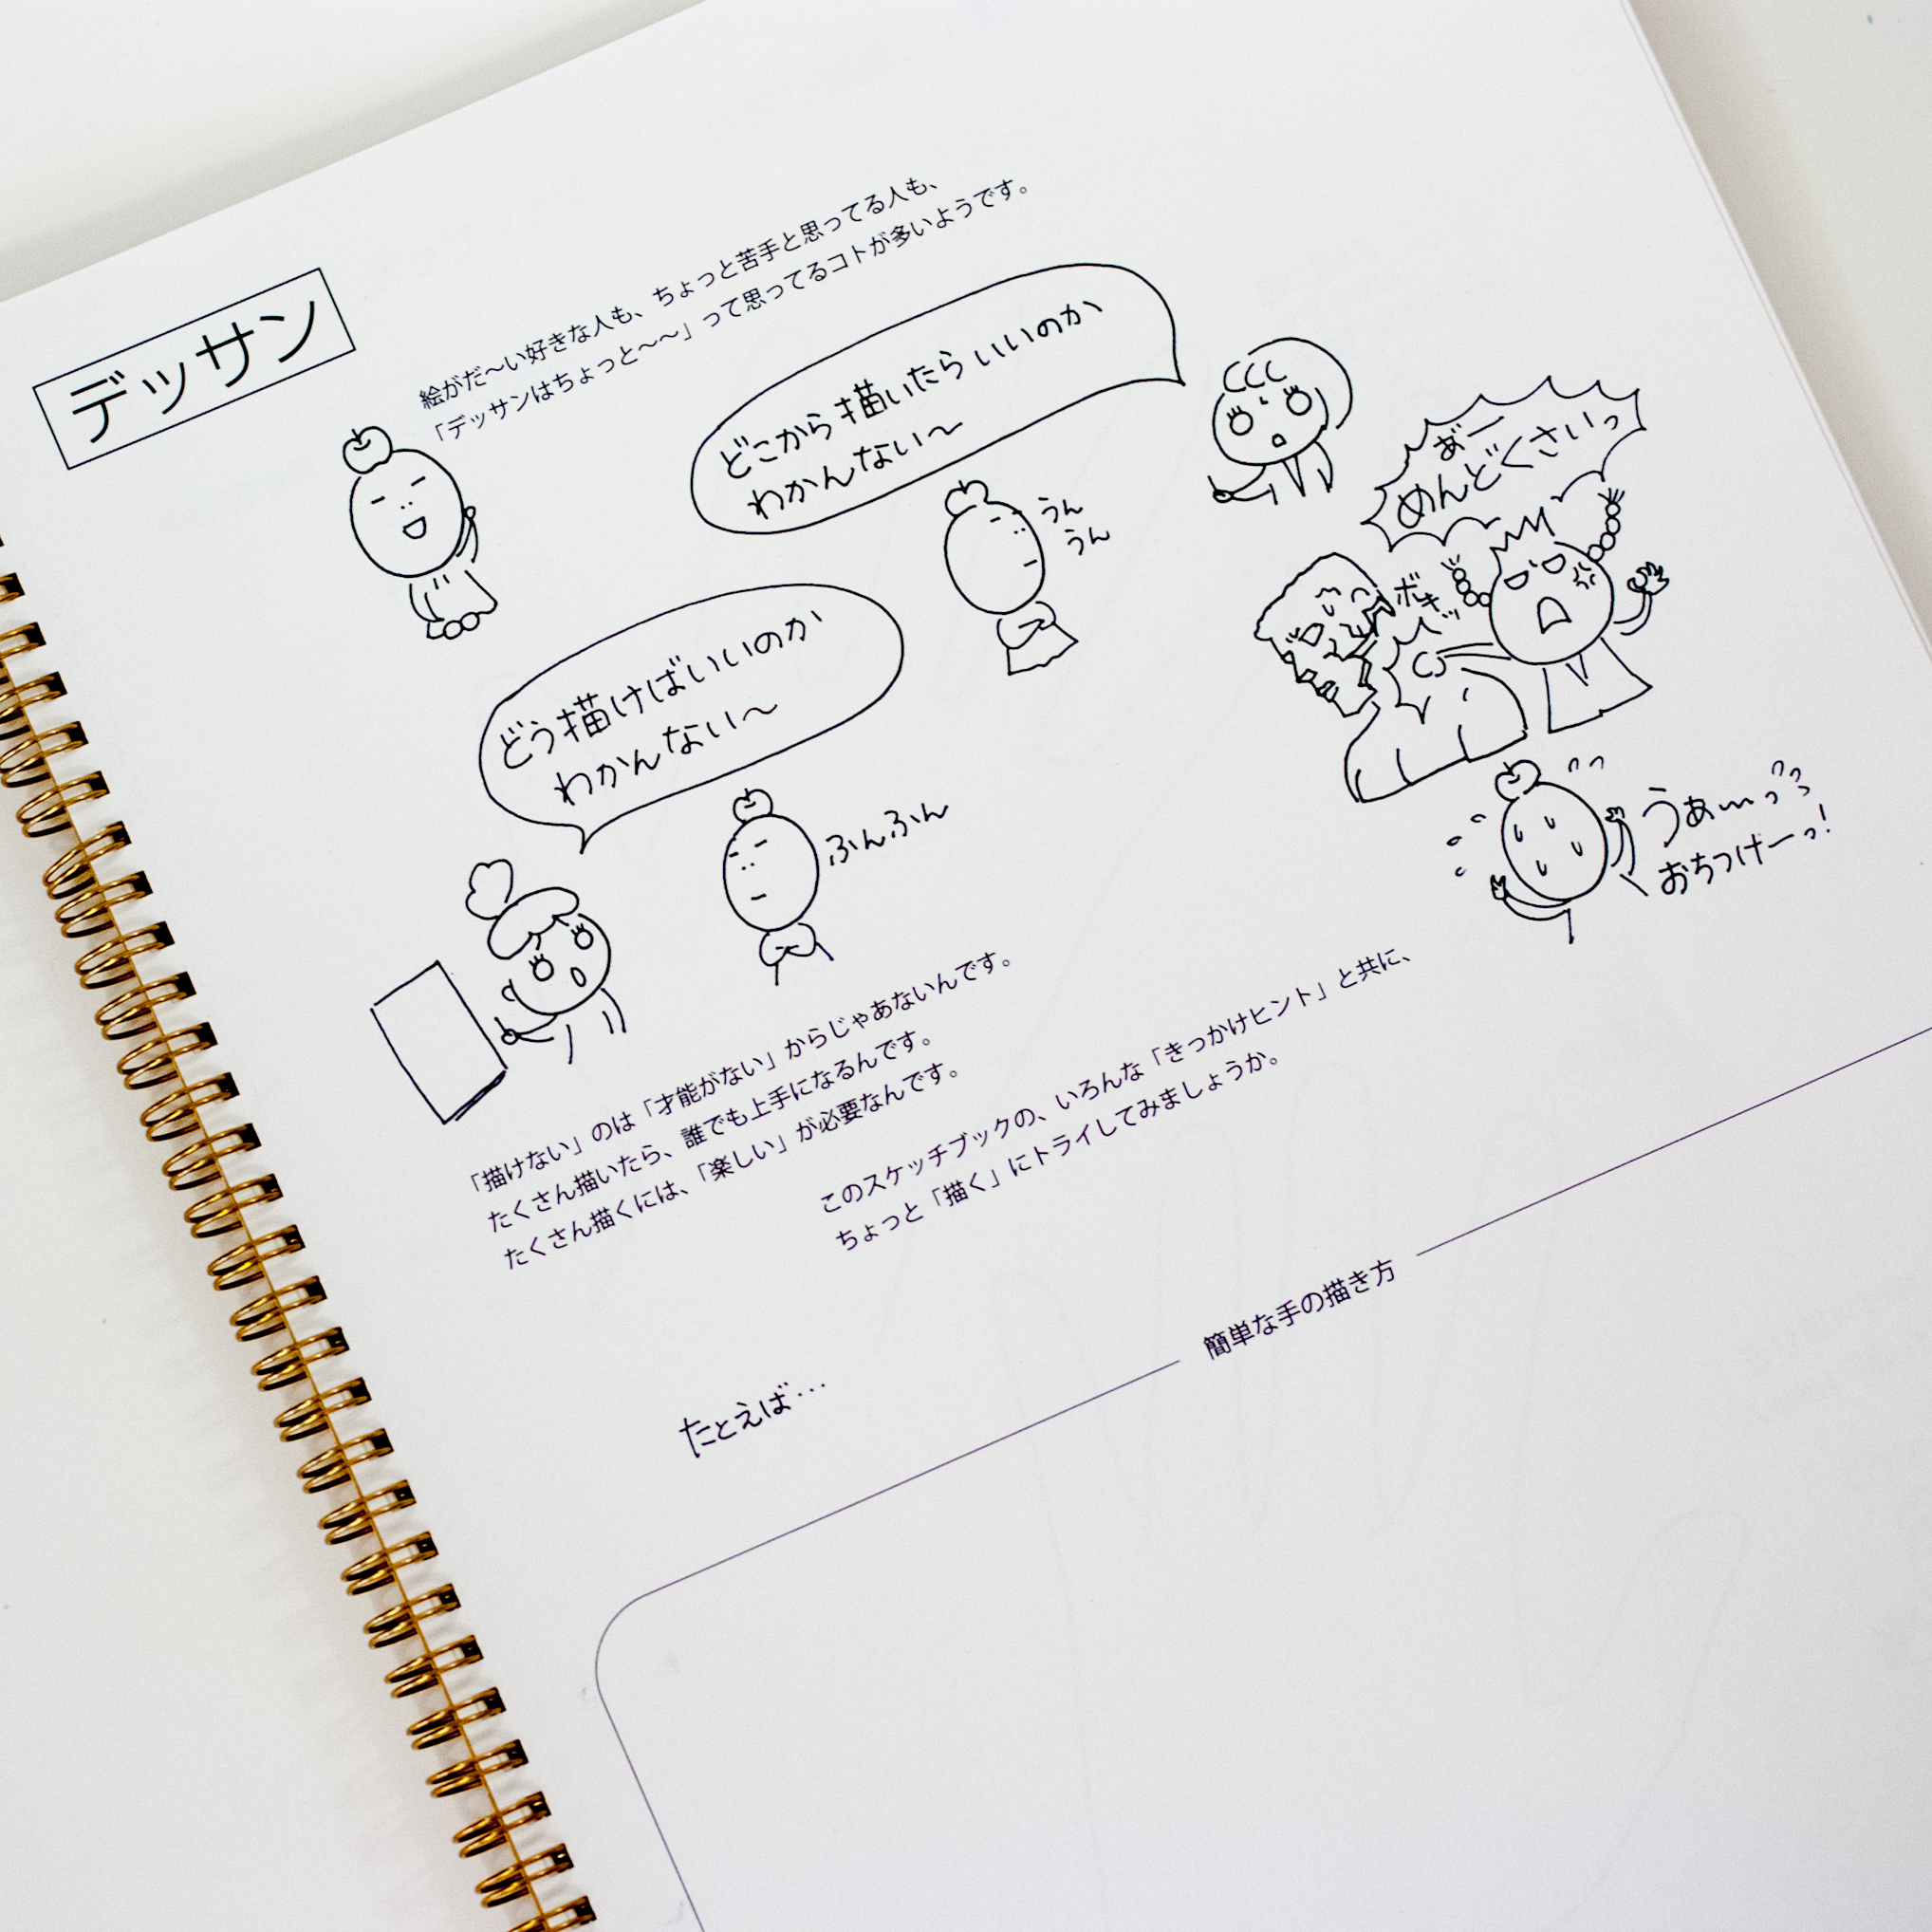 デッサン
絵がだ〜い好きな人も、ちょっと苦手と思ってる人も、
「デッサンはちょっと〜〜」って思ってるコトが多いようです。
どこから描いたらいいのか
わかんない〜
うん
うん
あ゛ー
めんどくさいっ
ボキッ
どう描けばいいのか
わかんない〜
ふんふん
うぁーっっ
おちつけーっ!
「描けない」のは「才能がない」からじゃあないんです。
たくさん描いたら、誰でも上手になるんです。
たくさん描くには、「楽しい」が必要なんです。
このスケッチブックの、いろんな「きっかけヒント」と共に、
ちょっと「描く」にトライしてみましょうか。
たとえば…
簡単な手の描き方